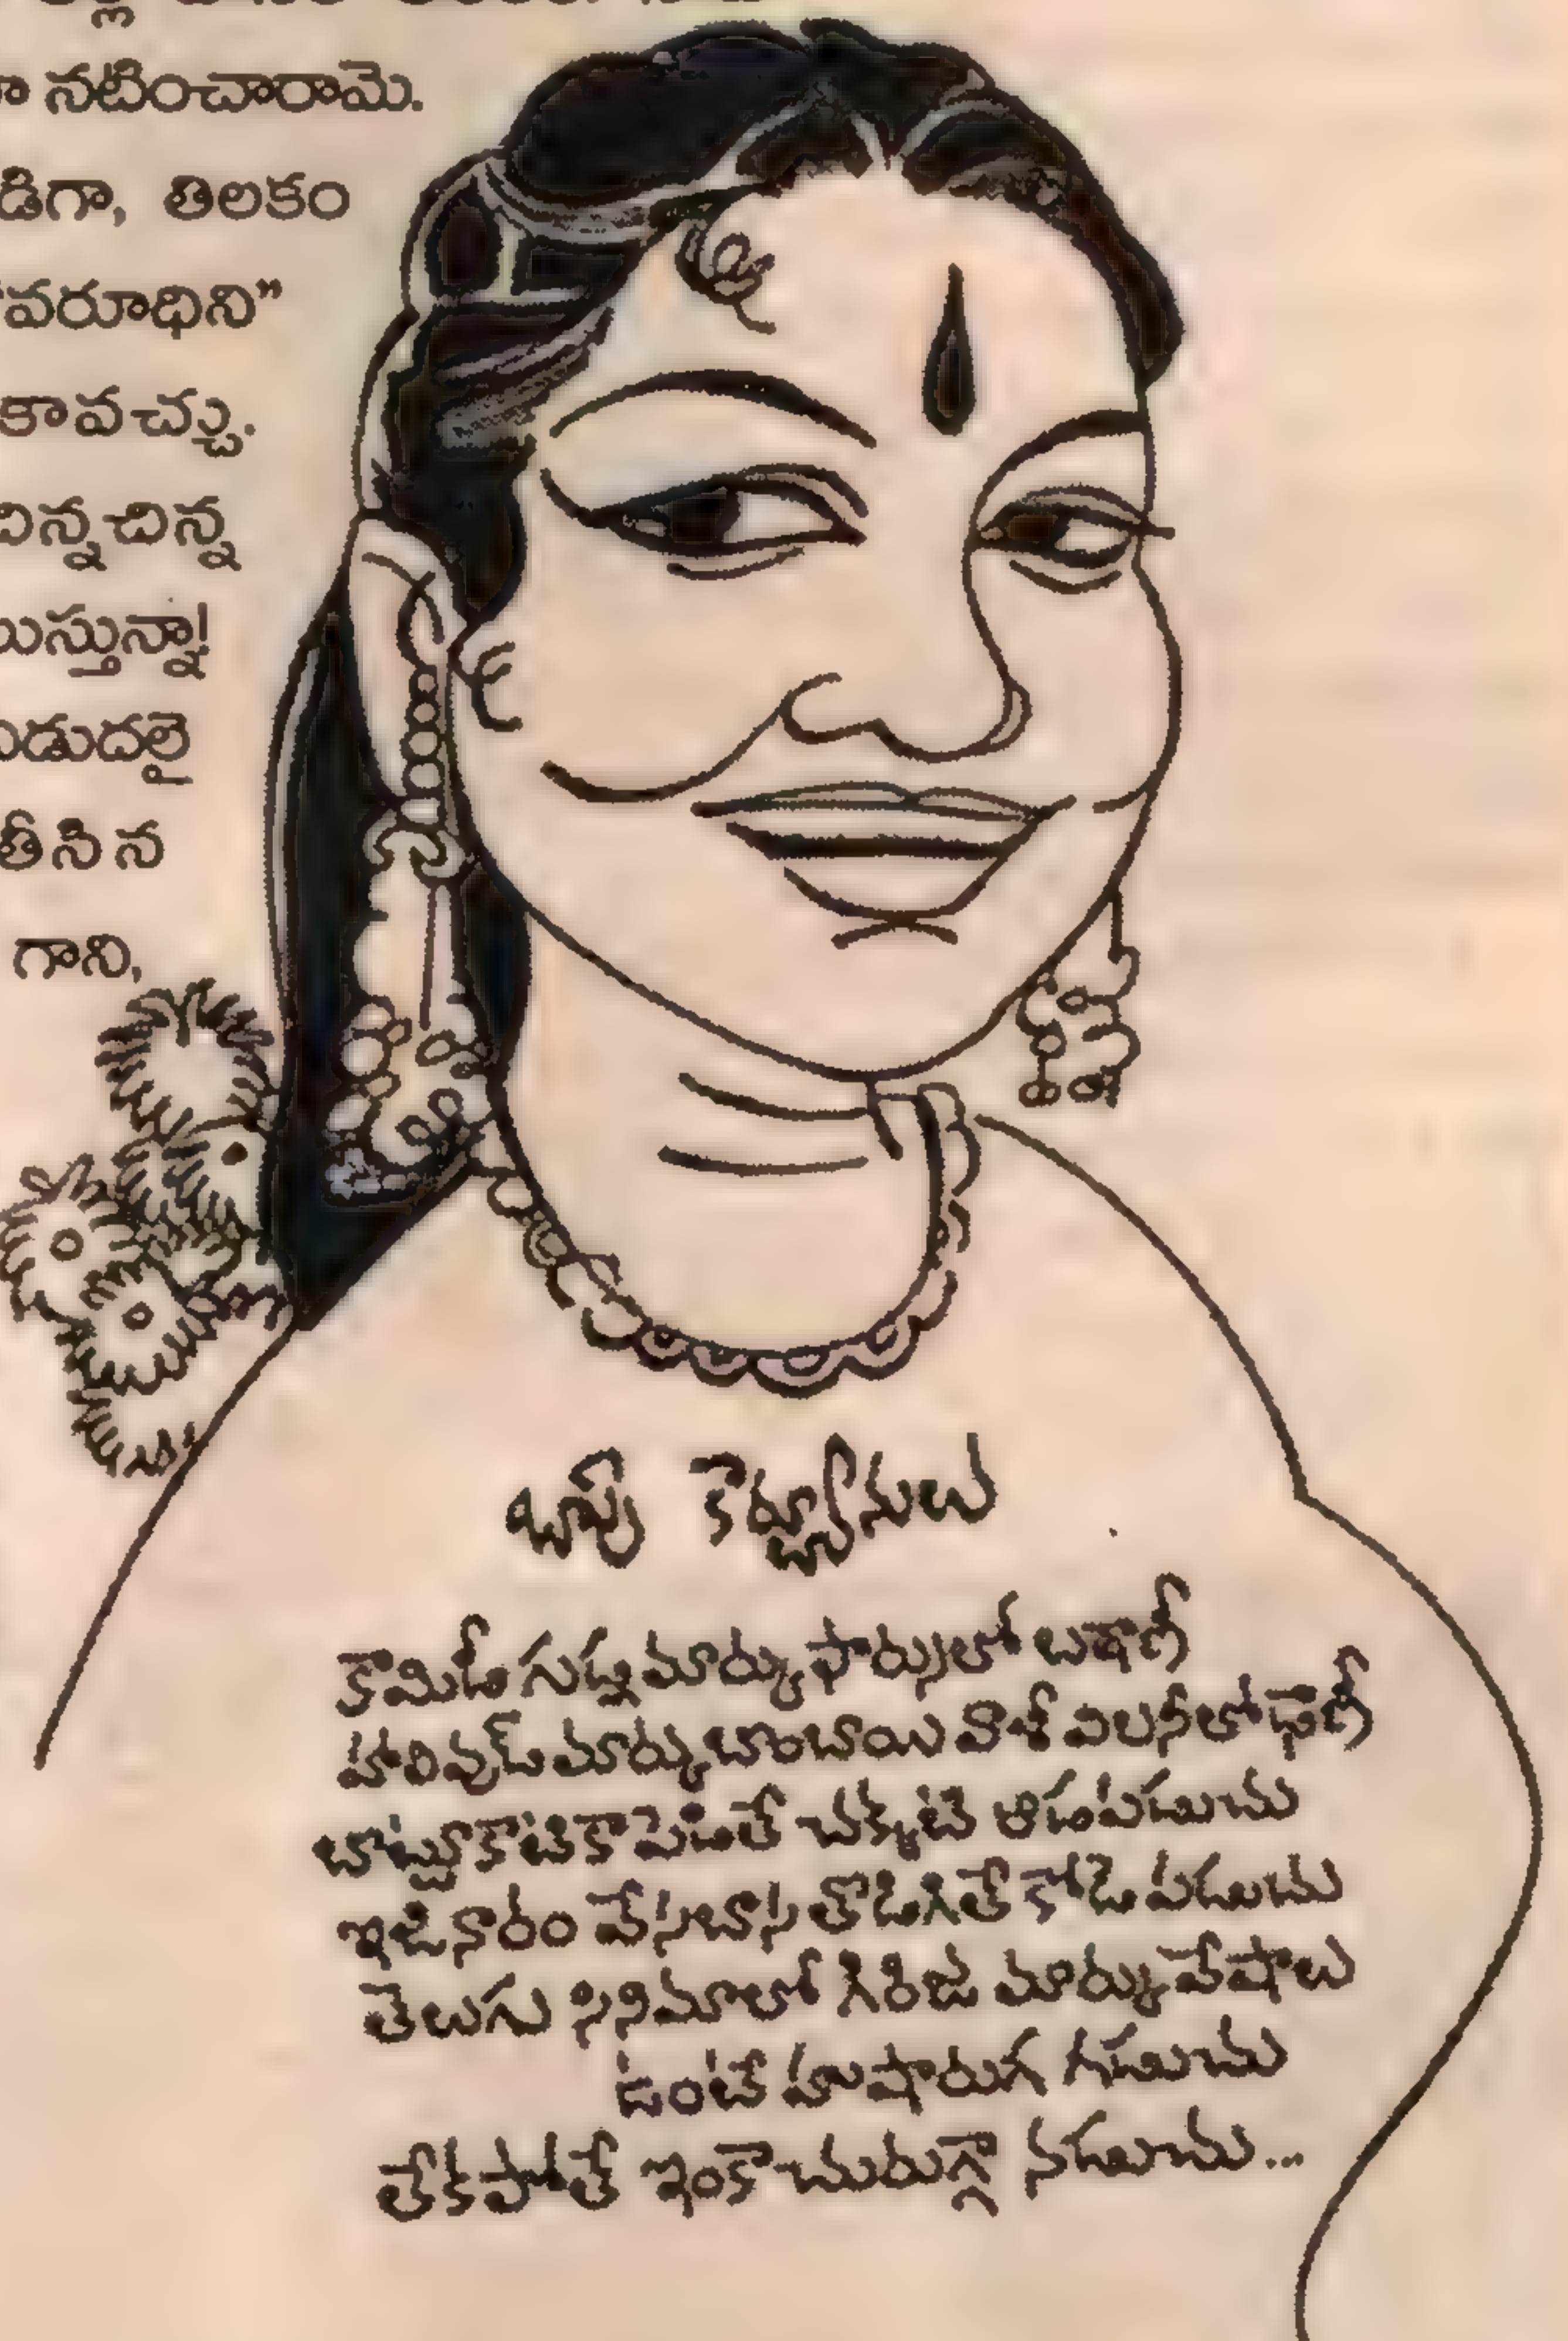 నటించారామె.
డిగా, తిలకం
"వరూధిని"
కావచ్చు.
చిన్నచిన్న
యిస్తున్నా!
విడుదలై
తీసిన
గాని,
బాపు కెర్బ్యూనులు
కామిడీ గుడ్లమార్కు ఫార్సులో బఠాణీ
హాలివుడ్ మార్కు బాంబాయి వాళీ విలనీలో ఘాటీ
బొట్టూ కాటికా పెడితే చక్కటి ఆడపడుచు
ఇజినారం వేసబాస తొడిగితే కోడె పడుచు
తెలుగు సినిమాలో గిరిజ మార్కు వేషాలు
ఉంటే హుషారుగ గడుచు
లేకపోతే ఇంకాచురుగ్గా నడుచు...